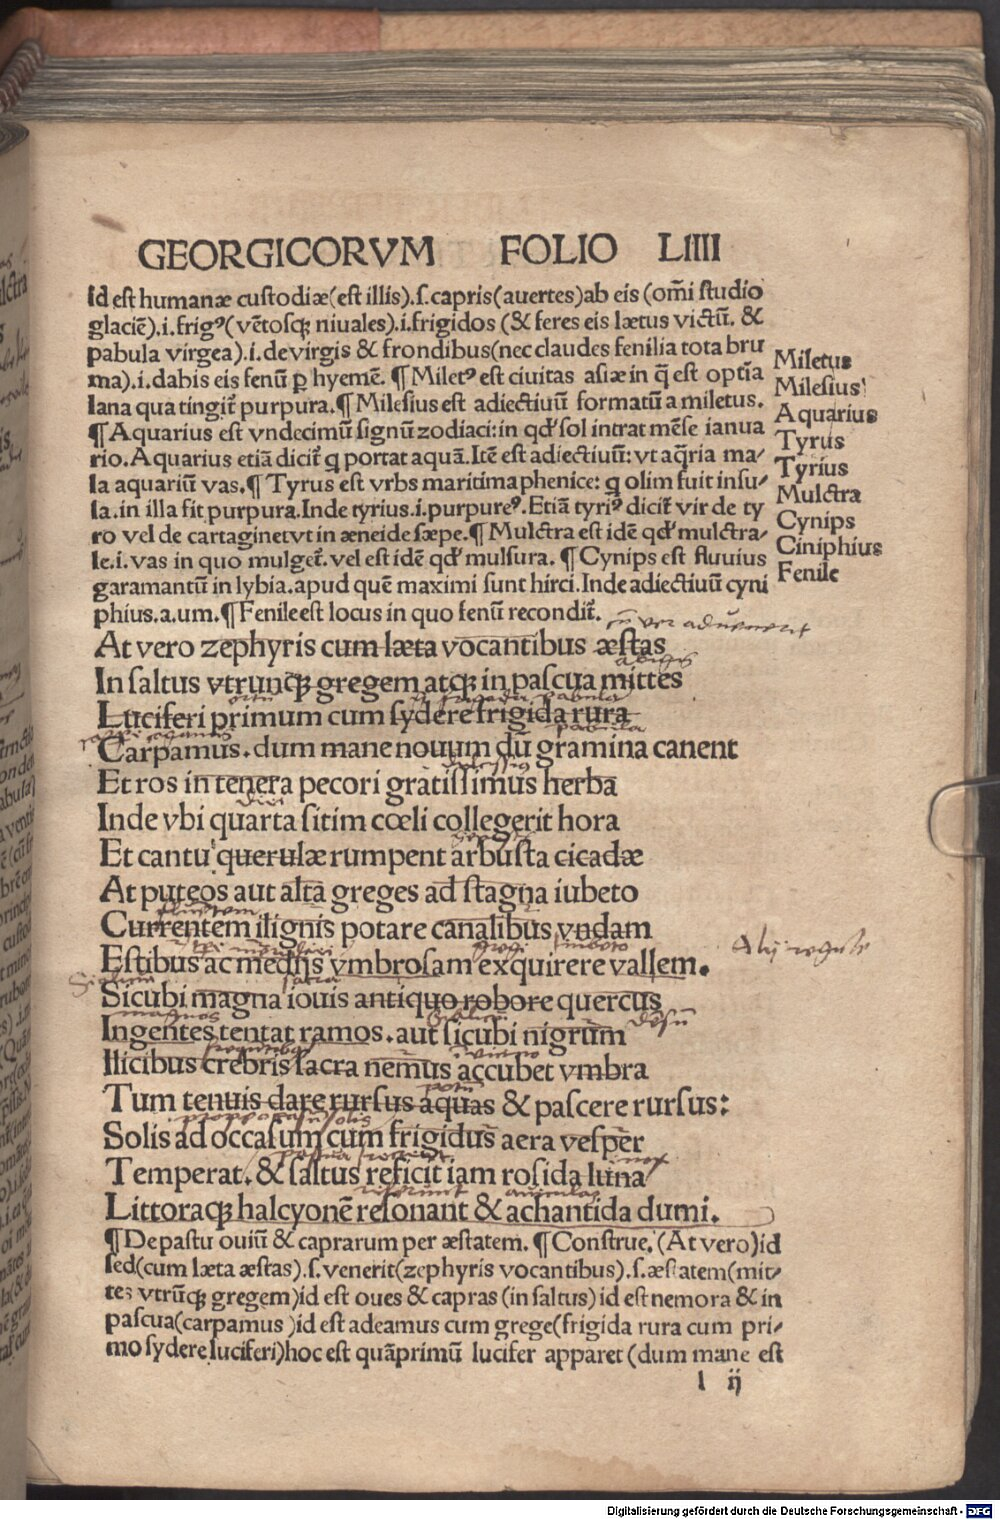 GEORGICORVM FOLIO LIIII
Id est humanæ custodiæ(est illis).ſ.capris(auertes)ab eis (om̃i ſtudio
glaciẽ).i.frigꝰ(vẽtoſqꝫ niuales).i.frigidos (& feres eis lætus victũ. &
pabula virgea).i.de virgis & frondibus(nec claudes fenilia tota bru
ma).i.dabis eis fenũ ꝑ hyemẽ. ¶ Miletꝰ est ciuitas asiæ in q̃ est optĩa
lana qua tingit᷑ purpura.¶ Milesius est adiectiuũ formatũ a miletus.
¶ Aquarius est vndecimũ signũ zodiaci: in qd̓ sol intrat mẽse ianua
rio. Aquarius etiã dicit᷑ q portat aquã. Itẽ est adiectiuũ: vt aq̃ria ma⸗
la aquariũ vas.¶ Tyrus est vrbs maritima phenice: q olim fuit insu⸗
la. in illa fit purpura. Inde tyrius.i.purpureꝰ. Etiã tyriꝰ dicit᷑ vir de ty
ro vel de cartagine tvt in æneide sæpe.¶ Mulctra est idẽ qd̓ mulctra⸗
le.i. vas in quo mulget᷑. vel est idẽ qd̓ mulsura. ¶ Cynips est fluuius
garamantũ in lybia. apud quẽ maximi sunt hirci. Inde adiectiuũ cyni
phius.a.um.¶ Fenile est locus in quo fenũ recondit᷑.
Miletus
Milesius
Aquarius
Tyrus
Tyrius
Mulctra
Cynips
Ciniphius
Fenile
At vero zephyris cum læta vocantibus æstas
In saltus vtrunqꝫ gregem atqꝫ in pascua mittes
Luciferi primum cum sydere frigida rura
Carpamus. dum mane nouum dũ gramina canent
Et ros in tenera pecori gratissimus herba
Inde vbi quarta sitim cœli collegerit hora
Et cantu querulæ rumpent arbusta cicadæ
At puteos aut alta greges ad stagna iubeto
Currentem ilignis potare canalibus vndam
Estibus ac medijs vmbrosam exquirere vallem.
Sicubi magna iouis antiquo robore quercus
Ingentes tentat ramos. aut sicubi nigrum
Ilicibus crebris sacra nemus accubet vmbra
Tum tenuis dare rursus aquas & pascere rursus:
Solis ad occasum cum frigidus aera vesper
Temperat. & saltus reficit iam rosida luna
Littoraqꝫ halcyonẽ resonant & achantida dumi.
¶ De pastu ouiũ & caprarum per æstatem. ¶ Construe. (At vero)id
sed(cum læta æstas).ſ.venerit(zephyris vocantibus).ſ.æstatem(mit⸗
tes vtrũqꝫ gregem)id est oues & capras (in saltus) id est nemora & in
pascua(carpamus )id est adeamus cum grege(frigida rura cum pri⸗
mo sydere luciferi)hoc est quãprimũ lucifer apparet (dum mane est
l ij
Digitalisierung gefördert durch die Deutsche Forschungsgemeinschaft - DFG